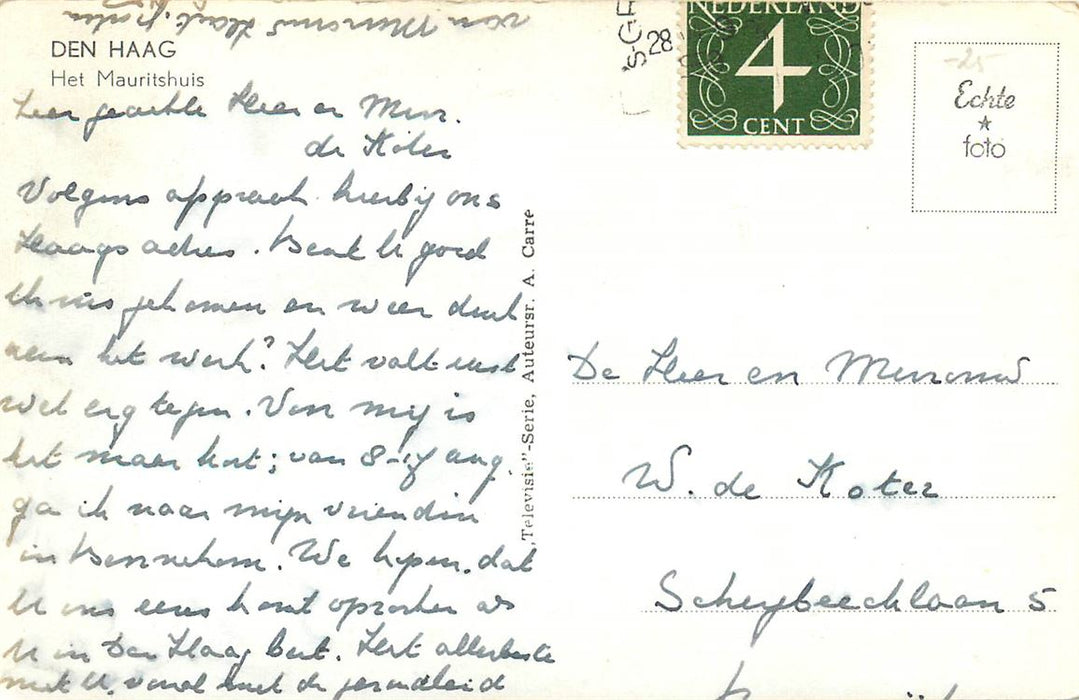 van Mevrouw
DEN HAAG
Het Mauritshuis
Zeer geachte Heer en Mevr.
de Koter
Volgens afspraak hierbij ons
Haags adres. Bent U goed
thuis gekomen en weer druk
aan het werk? Het valt vast
wel erg tegen. Van mij is
het maar kort; van 8-17 aug.
ga ik naar mijn vriendin
in Bennekom. We hopen, dat
U ons eens komt opzoeken als
U in Den Haag bent. Het allerbeste
met U, vooral met de gezondheid
„Televisie”-Serie, Auteursr. A. Carre
'S-GR
28
NEDERLAND
4
CENT
-25
Echte
foto
De Heer en Mevrouw
W. de Koter
Scheybeecklaan 5